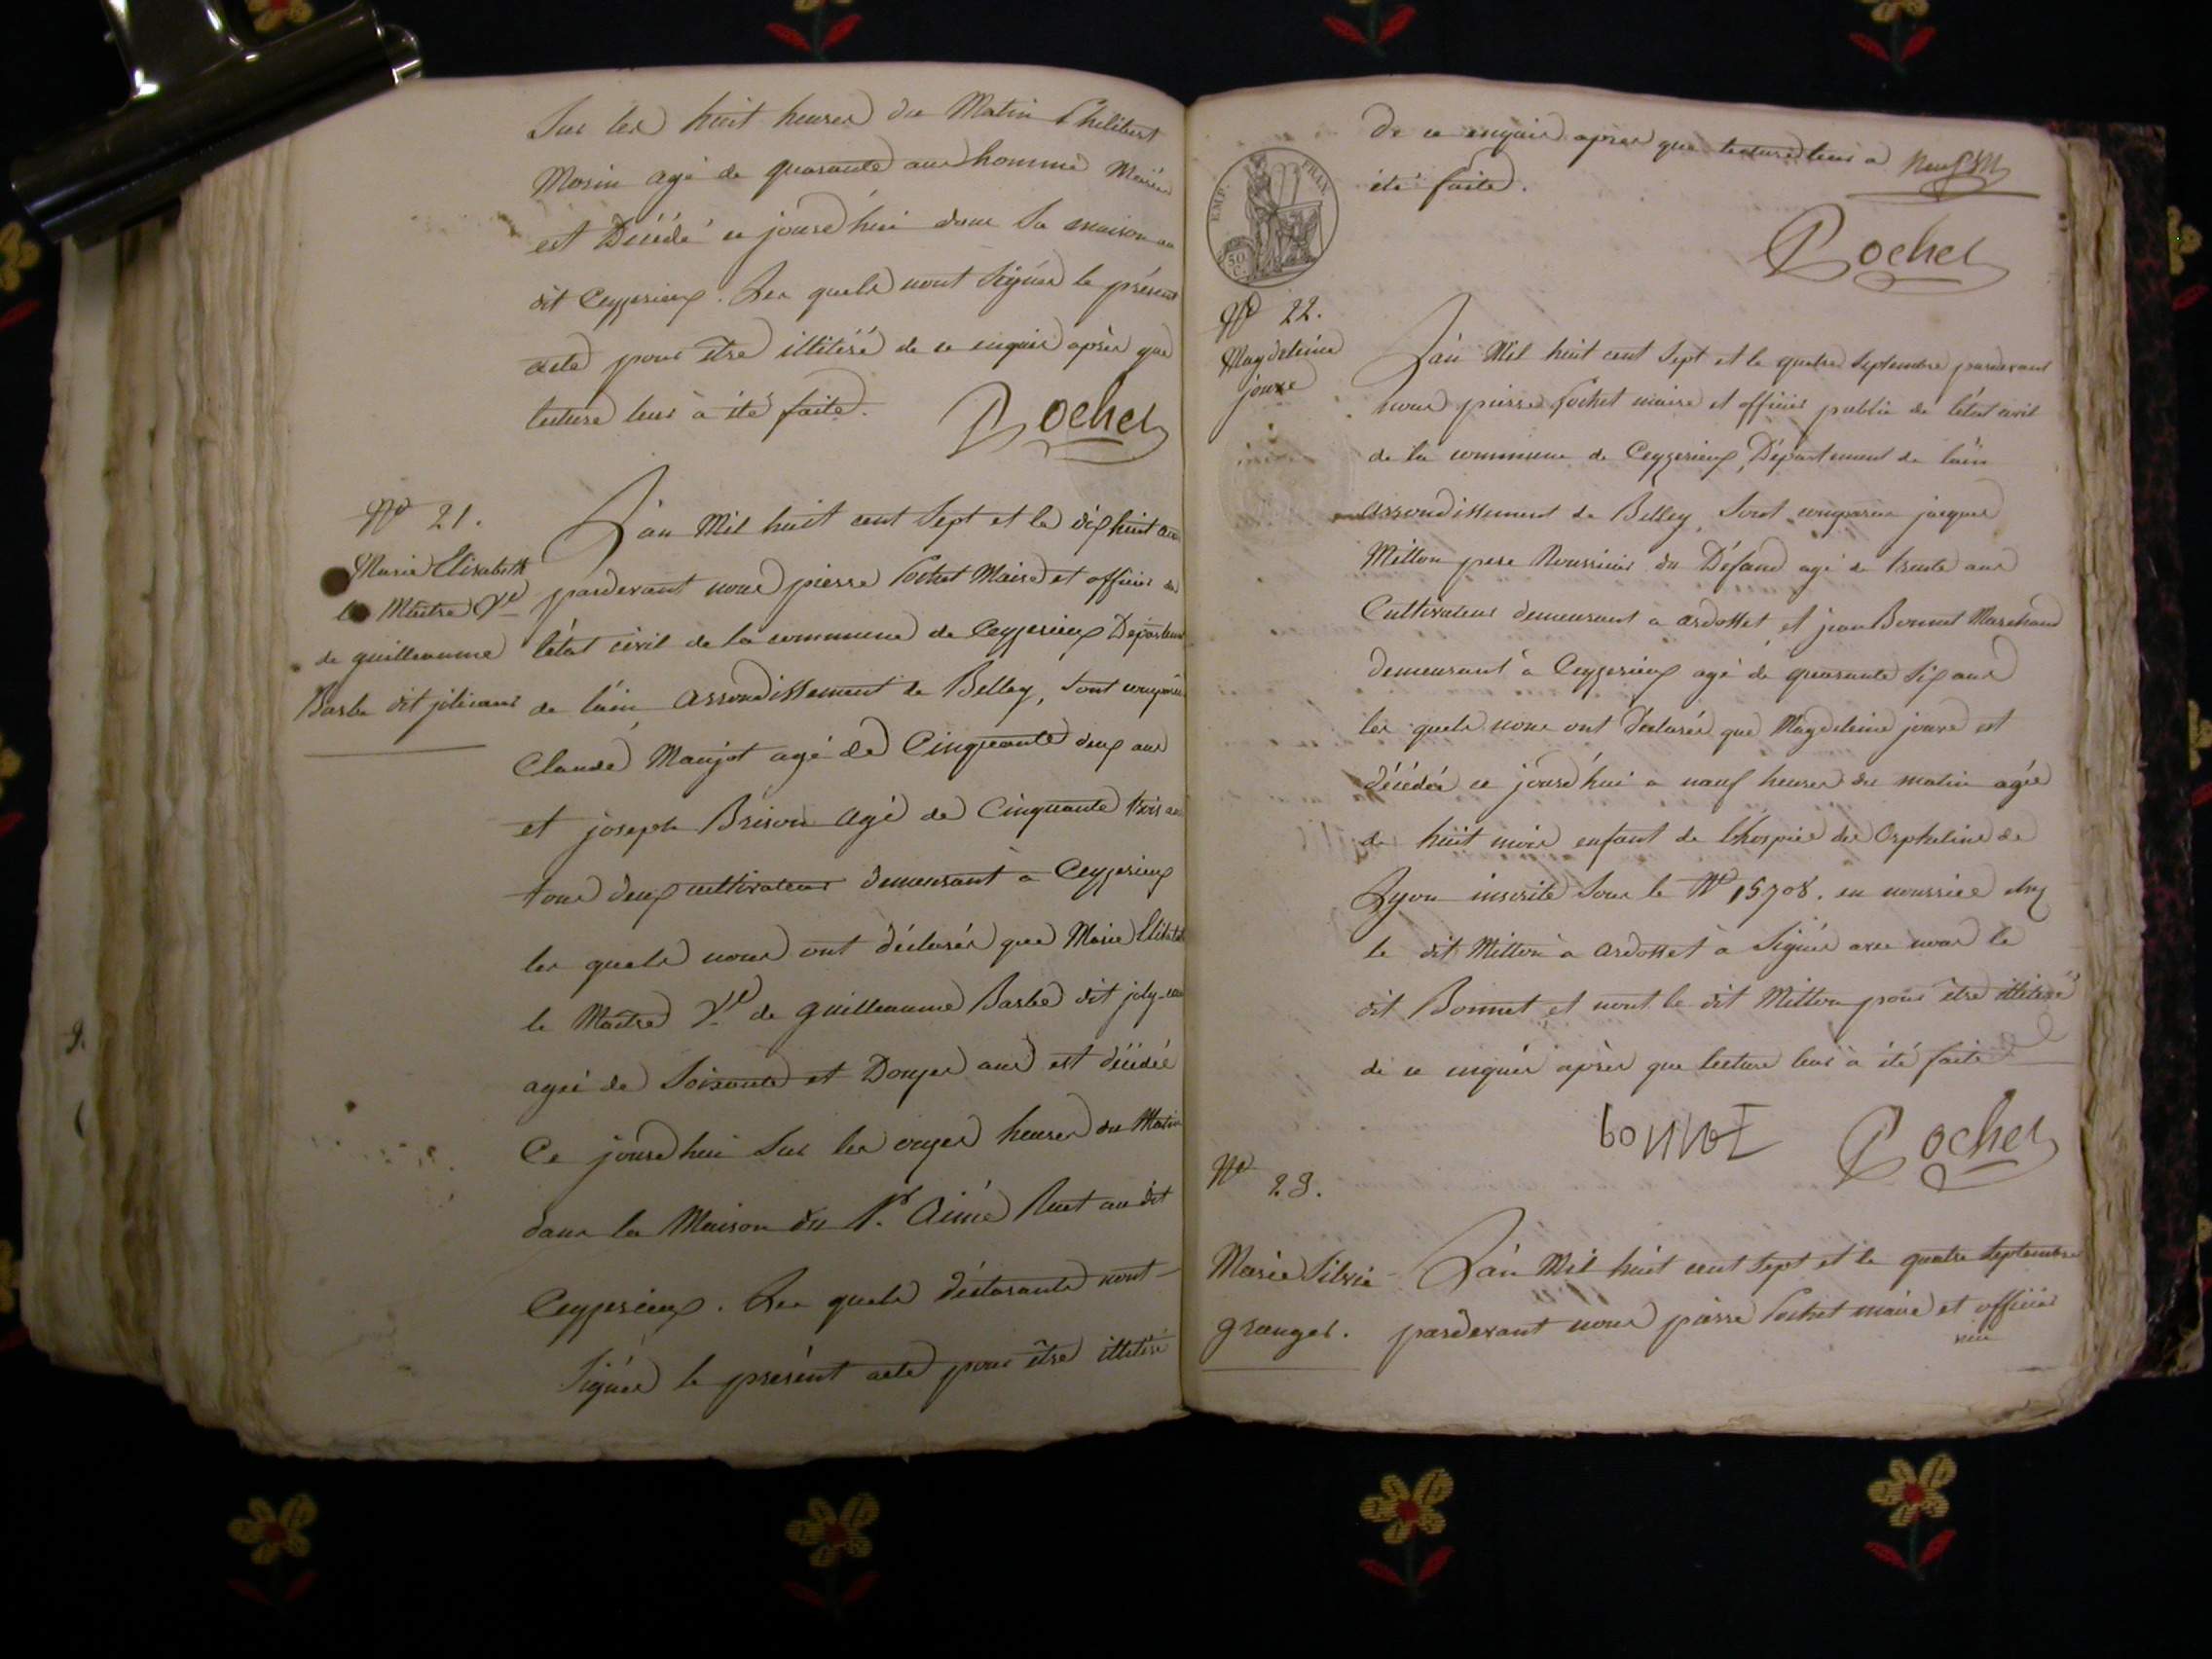 Sur les huit heures du Matin Philibert
Morin agé de quarante ans homme Marié
est Décédé ce jourd'hui dans sa maison au
dit Ceyzerieux. Les quels n'ont Signés le présent
acte pour être illitéré de ce enquis après que
lecture leur à été faite.
Rochet
No 21.
Marie Elisabeth
le Maitre Ve
de guillaume
Barbe dit jolicoeur
L'an Mil huit cent Sept et le dix huit aout
pardevant nous pierre Rochet Maire et officier de
l'état civil de la commune de Ceyzerieux Département
de l'ain, Arrondissement de Belley, Sont comparus
Claude Manjot agé de Cinquante deux ans
et joseph Brison agé de Cinquante trois ans
tous deux cultivateurs demeurant à Ceyzerieux
les quels nous ont déclarés que Marie Elisabeth
le Maitre Ve de guillaume Barbe dit joly-coeur
agée de Soixante et Douzes ans est décédée
Ce jourd'hui Sur les onzes heures du Matin
dans la Maison du Sr. Aimé Ruet au dit
Ceyzerieux. Les quels déclarants n'ont
Signés le présent acte pour être illitéré
de ce enquis après que lecture leur a
été faite.
Rochet
EMP. FRAN.
50 C.
No 22.
Magdeleine
jouve
L'an Mil huit cent Sept et le quatre Septembre pardevant
nous pierre Rochet maire et officier public de l'état civil
de la commune de Ceyzerieux, Département de l'ain
arrondissement de Belley, Sont comparus jacques
Mitton pere Nourricier du Défaud agé de trente ans
Cultivateur demeurant a ardosset, et jean Bonnet Marchand
demeurant à Ceyzerieux agé de quarante Six ans
les quels nous ont déclarés que Magdeleine jouve est
décédée ce jourd'hui a neuf heures du matin agée
de huit mois enfant de l'hospice des Orphelins de
Lyon inscrite Sous le No 15708. en nourrice chez
le dit Mitton à ardosset à Signé avec nous le
dit Bonnet et non le dit Mitton pour être illitéré
de ce enquis après que lecture leur à été faite
bonnet
Rochet
No 23.
Marie Silvie
granger.
L'an Mil huit cent Sept et le quatre Septembre
pardevant nous pierre Rochet maire et officier